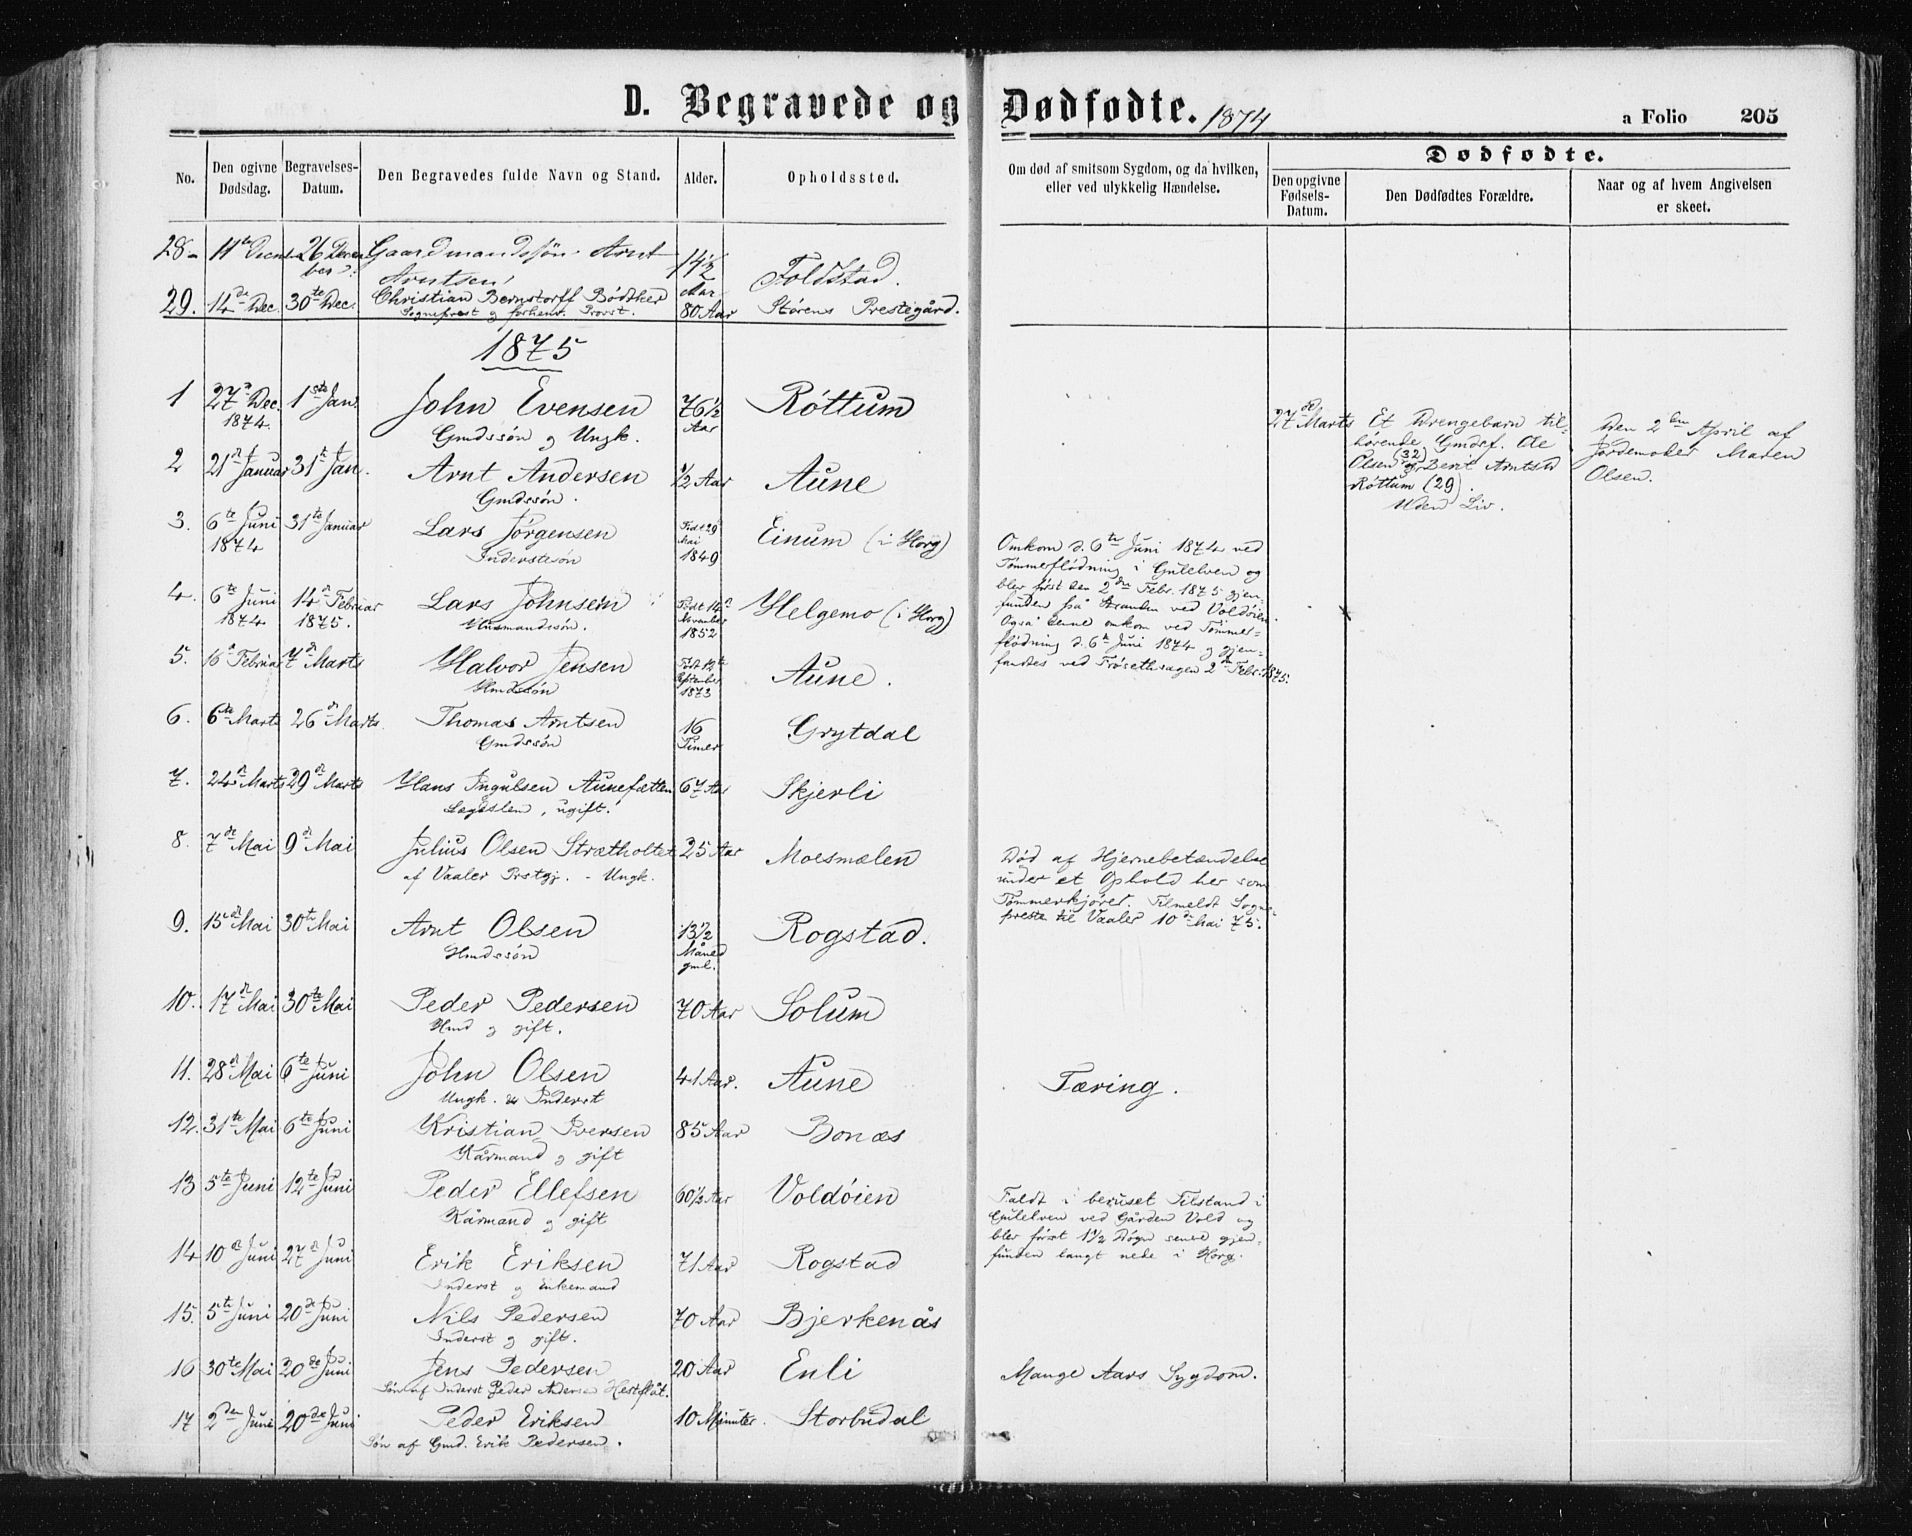 D. Begravede og Dødfødte. 1874
a Folio 205
No. Den ogivne Dødsdag. Begravelses-Datum. Den Begravedes fulde Navn og Stand. Alder. Opholdssted. Om død af smitsom Sygdom, og da hvilken, eller ved ulykkelig Hændelse.
Dødfødte.
Den opgivne Fødsels-Datum. Den Dødfødtes Forældre. Naar og af hvem Angivelsen er skeet.
28 - 11te Decmb 26 Decem Gaardmandssøn Arnt 14 1/2 Foldstad.
ber Arntsen Aar
29. 14de Dec. 30te Dec. Christian Bernstorff Bødtker 80 Aar Størens Prestegård.
Sogneprest og forhenv. Provst.
1875
1 27de Dec. 1ste Jan. John Evensen 76 1/2 Røttum
1874. Gmdssøn og Ungk. Aar
27de Marts Et Drengebarn til-
hørende Gmdsf. Ole
Olsen (32) og Berit Arntsd
Røttum (29).
Uden Liv.
Den 2den April af
Jordemoder Maren
Olsen.
2 21de Januar 31te Jan. Arnt Andersen 1/2 Aar Aune
Gmdssøn.
3. 6te Juni 31te Januar Lars Jørgensen Født 29 Einum (i Horg)
1874 Inderstsøn Mai
1849
Omkom d. 6te Juni 1874 ved
Tømmerflødning i Gulelven og
blev først den 2den Febr. 1875 gjen-
funden på Stranden ved Voldøien.
4. 6te Juni 14de Februar Lars Johnsen Født 14de Helgemo (i Horg)
1874 1875. Husmandssøn. November
1852
Også denne omkom ved Tømmer-
flødning d. 6te Juni 1874 og gjen-
fandtes ved Frøsethsagen 2den Febr. 1875.
5. 16de Februar 7de Marts Halvor Jensen Født 12te Aune.
Hmdssøn September
1873
6. 6te Marts 26de Marts Thomas Arntsen 16 Grytdal
Gmdssøn Timer
7. 24de Marts 29de Marts Hans Ingulsen Aunefætten 67 Aar Skjerli
Lægdslem, ugift.
8. 7de Mai 9de Mai Julius Olsen Strætholtet 25 Aar Moesmælen
af Vaaler Prstgj. - Ungk.
Død af Hjernebetændelse
under et Ophold her som
Tømmerkjører. Tilmeldt Sogne-
preste til Vaaler 10de Mai 75.
9. 15de Mai 30te Mai Arnt Olsen 13 1/2 Rogstad.
Hmdssøn Måned
gml.
10. 17de Mai 30te Mai Peder Pedersen 70 Aar Solum
Hmd og gift.
11. 28de Mai 6te Juni John Olsen 41 Aar. Aune Tæring.
Ungk. & Inderst
12. 31te Mai 6te Juni Kristian Iversen 85 Aar Bonæs
Kårmand og gift
13 5te Juni 12te Juni Peder Ellefsen 60 1/2 Aar Voldøien
Kårmand og gift
Faldt i beruset Tilstand i
Gulelven ved Gården Vold og
blev først 1 1/2 Døgn senere gjen-
funden langt nede i Horg.
14 10de Juni 27de Juni Erik Eriksen 71 Aar Rogstad
Inderst og Enkemand
15. 5te Juni 20de Juni Nils Pedersen 70 Aar Bjerkenås
Inderst og gift.
16 30te Mai 20de Juni Jens Pedersen 20 Aar Enli Mange Aars Sygdom.
Søn af Inderst Peder Andersen Hestflåt.
17 2den Juni 20de Juni Peder Eriksen 10 Minuter. Storbudal
Søn af Gmd. Erik Pedersen.